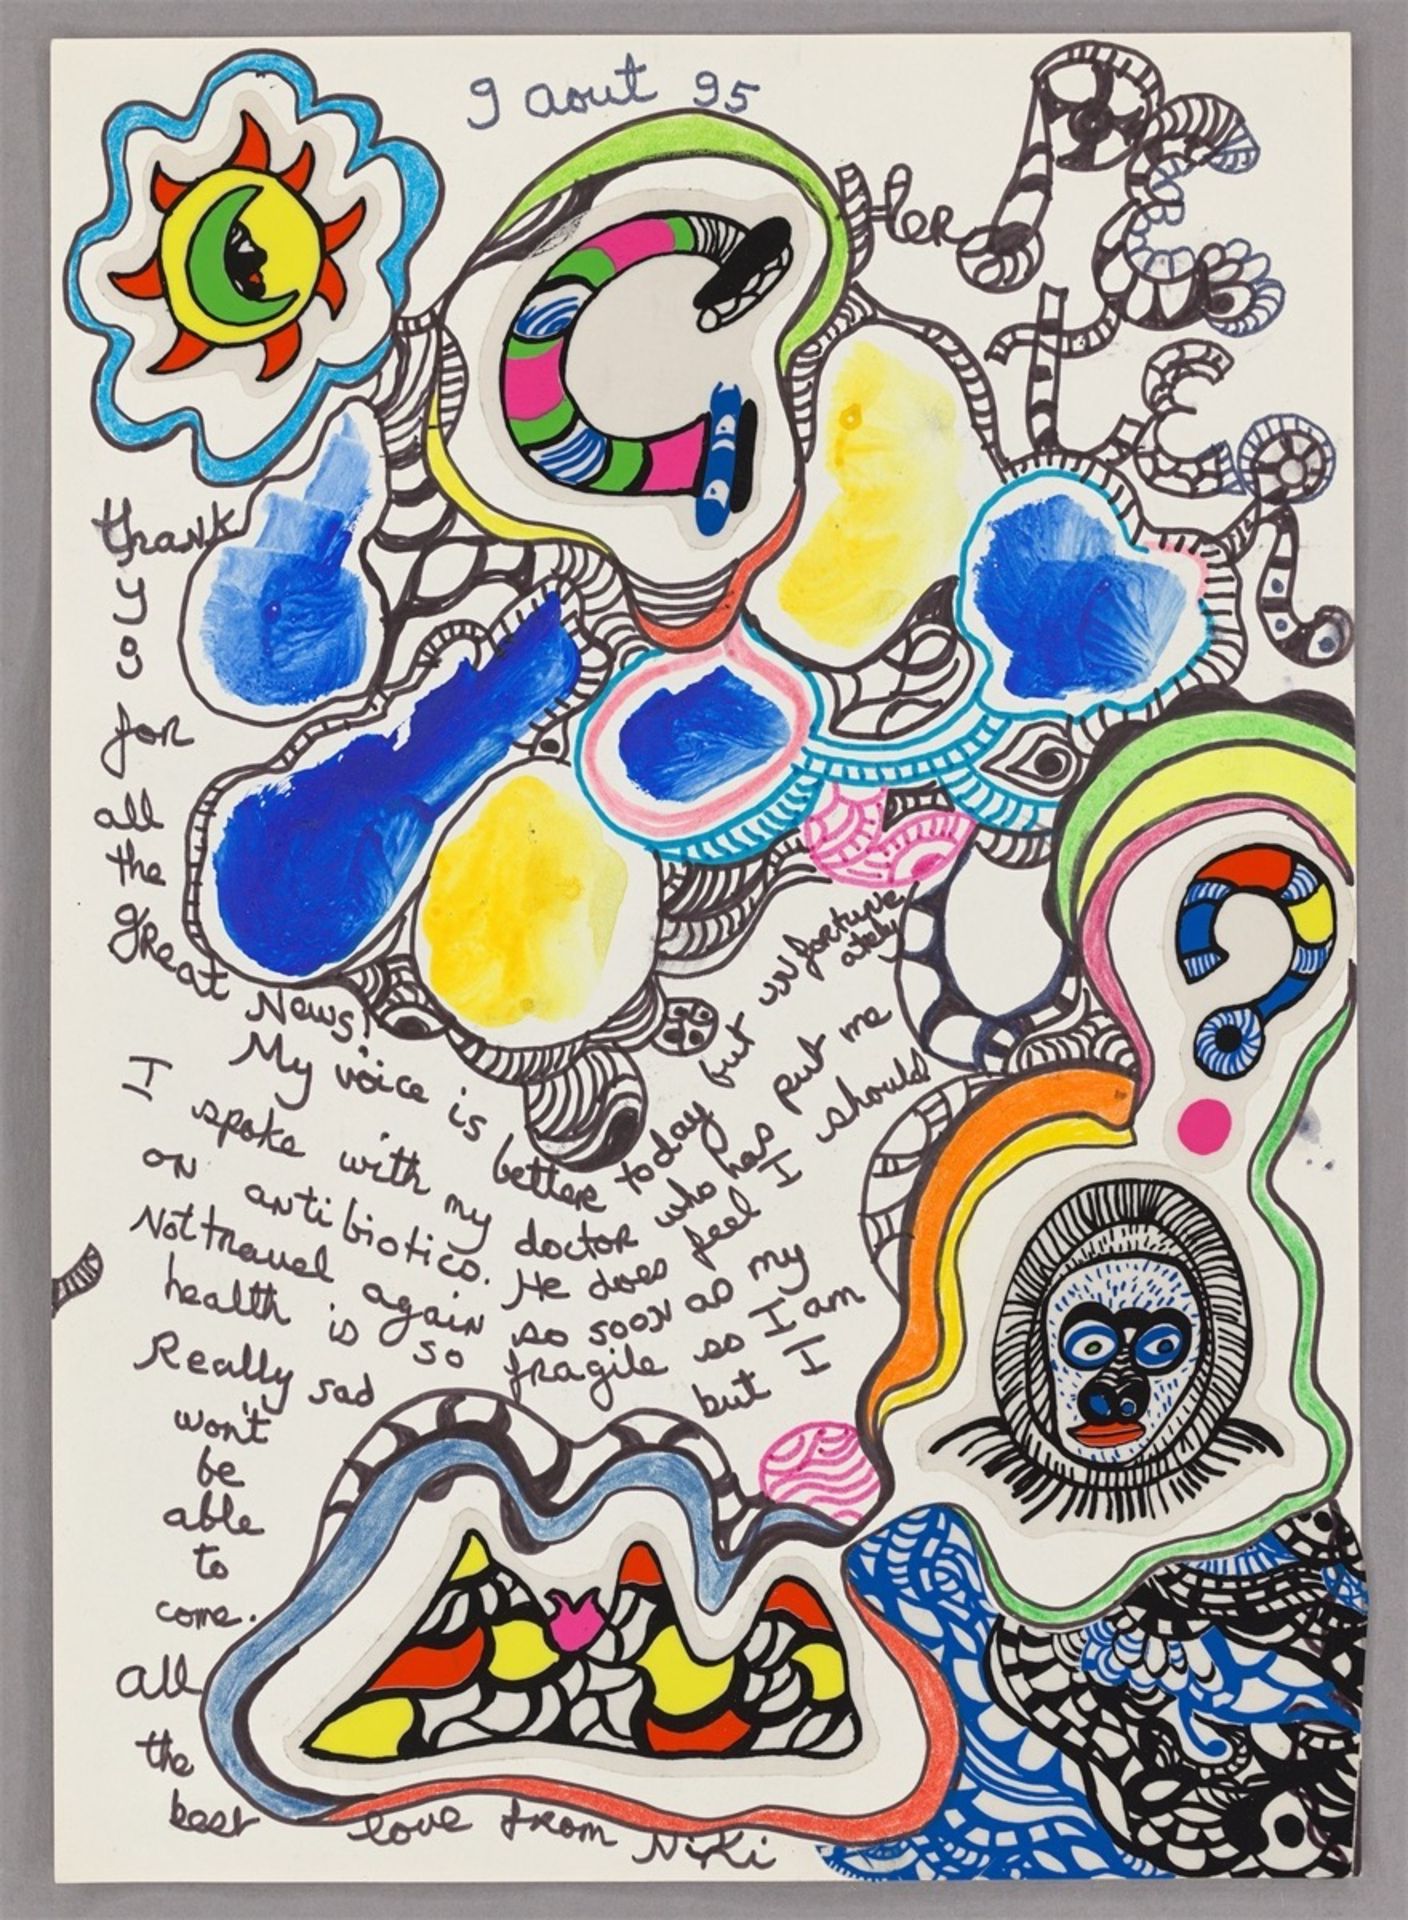 9 aout 95
Cher Peter
thank
yo
for
all
the
great News!
My voice is better today but unfortune
ately
I spoke with my doctor who has put me
on antibiotics. He does feel I should
Not travel again so soon as my
health is so fragile so I am
Really sad but I
won't
be
able
to
come.
all
the
best
love from Niki
?